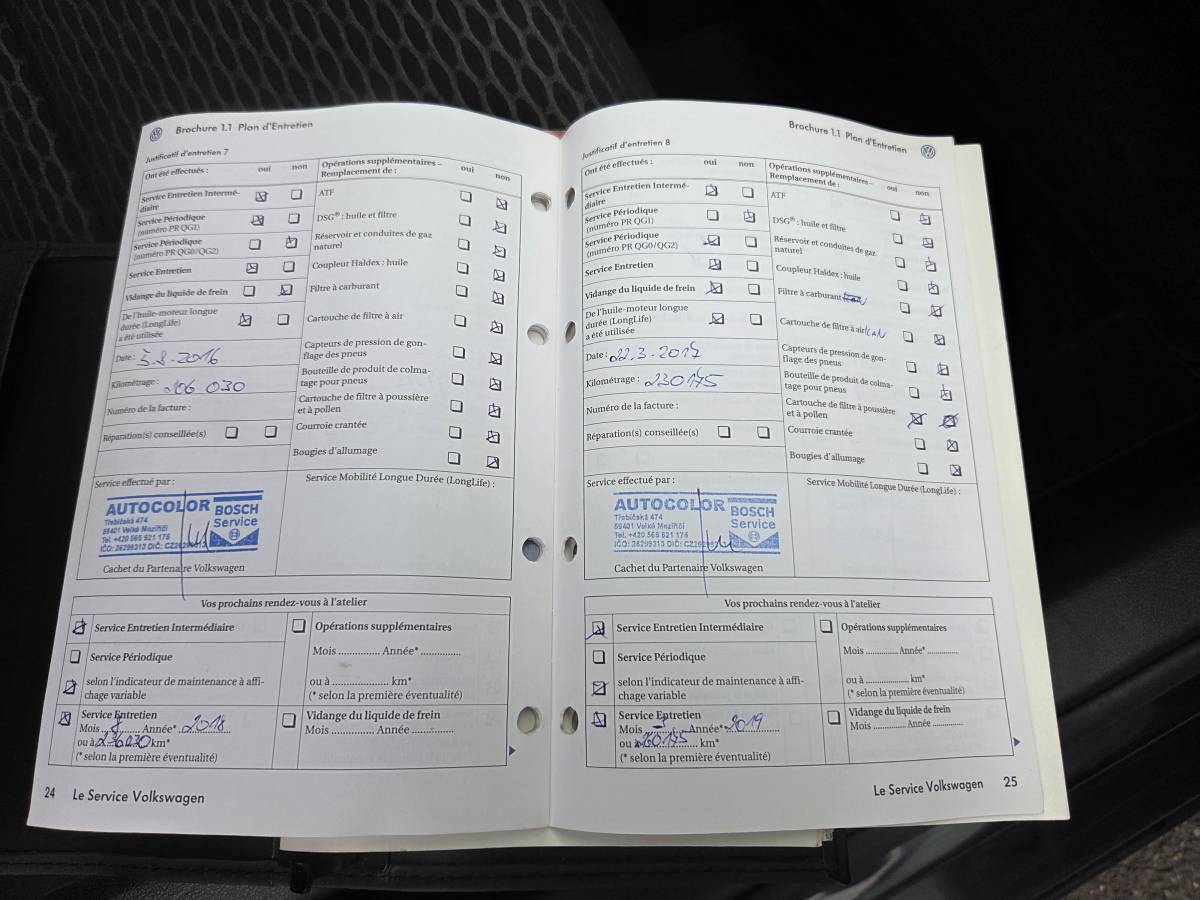 Brochure 1.1 Plan d'Entretien
Justificatif d'entretien 7
Ont été effectués : oui non
Opérations supplémentaires – Remplacement de : oui non
Service Entretien Intermé-
diaire
Service Périodique
(numéro PR QG1)
Service Périodique
(numéro PR QG0/QG2)
Service Entretien
Vidange du liquide de frein
De l'huile-moteur longue
durée (LongLife)
a été utilisée
Date : 3.8.2016
Kilométrage : 206 030
Numéro de la facture :
Réparation(s) conseillée(s)
ATF
DSG® : huile et filtre
Réservoir et conduites de gaz
naturel
Coupleur Haldex : huile
Filtre à carburant
Cartouche de filtre à air
Capteurs de pression de gon-
flage des pneus
Bouteille de produit de colma-
tage pour pneus
Cartouche de filtre à poussière
et à pollen
Courroie crantée
Bougies d'allumage
Service effectué par :
AUTOCOLOR
Třebíčská 474
59401 Velké Meziříčí
Tel. +420 566 521 176
IČO: 26299313 DIČ:
BOSCH
Service
Cachet du Partenaire Volkswagen
Service Mobilité Longue Durée (LongLife) :
Vos prochains rendez-vous à l'atelier
Service Entretien Intermédiaire
Service Périodique
selon l'indicateur de maintenance à affi-
chage variable
Service Entretien
Mois 8 Année* 2018
ou à 236030 km*
(* selon la première éventualité)
Opérations supplémentaires
Mois .............. Année* ..............
ou à .................... km*
(* selon la première éventualité)
Vidange du liquide de frein
Mois .............. Année ..............
24 Le Service Volkswagen
Brochure 1.1 Plan d'Entretien
Justificatif d'entretien 8
Ont été effectués : oui non
Opérations supplémentaires – Remplacement de : oui non
Service Entretien Intermé-
diaire
Service Périodique
(numéro PR QG1)
Service Périodique
(numéro PR QG0/QG2)
Service Entretien
Vidange du liquide de frein
De l'huile-moteur longue
durée (LongLife)
a été utilisée
Date : 22.3.2017
Kilométrage : 230175
Numéro de la facture :
Réparation(s) conseillée(s)
ATF
DSG® : huile et filtre
Réservoir et conduites de gaz
naturel
Coupleur Haldex : huile
Filtre à carburant
Cartouche de filtre à air
Capteurs de pression de gon-
flage des pneus
Bouteille de produit de colma-
tage pour pneus
Cartouche de filtre à poussière
et à pollen
Courroie crantée
Bougies d'allumage
Service effectué par :
AUTOCOLOR
Třebíčská 474
59401 Velké Meziříčí
Tel. +420 566 521 176
IČO: 26299313 DIČ:
BOSCH
Service
Cachet du Partenaire Volkswagen
Service Mobilité Longue Durée (LongLife) :
Vos prochains rendez-vous à l'atelier
Service Entretien Intermédiaire
Service Périodique
selon l'indicateur de maintenance à affi-
chage variable
Service Entretien
Mois 3 Année* 2019
ou à 260175 km*
(* selon la première éventualité)
Opérations supplémentaires
Mois .............. Année* ..............
ou à .................... km*
(* selon la première éventualité)
Vidange du liquide de frein
Mois .............. Année ..............
Le Service Volkswagen 25